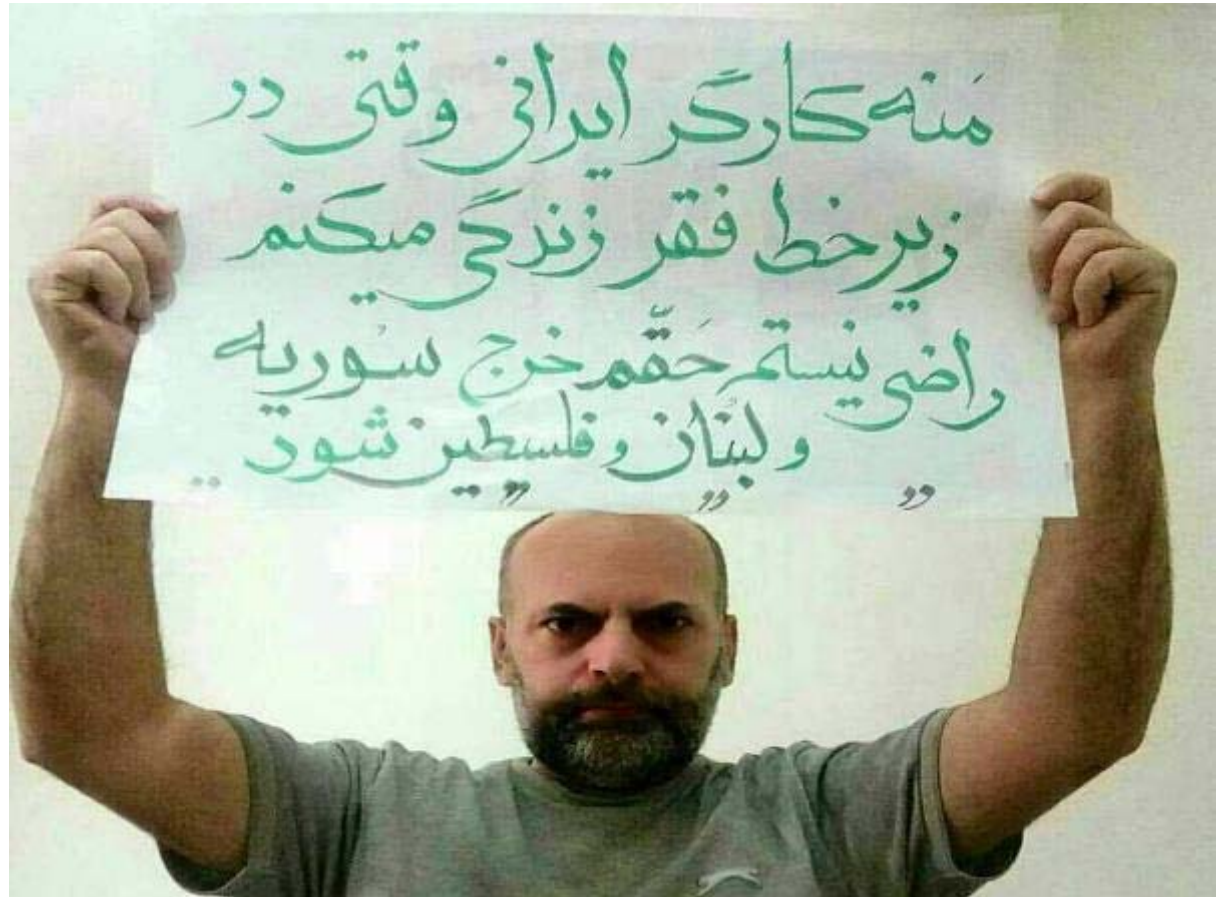 مَنه کارگر ایرانی وقتی در
زیر خط فقر زندگی میکنم
راضی نیستم حَقّم خرج سوریه
و لبنان و فلسطین شود